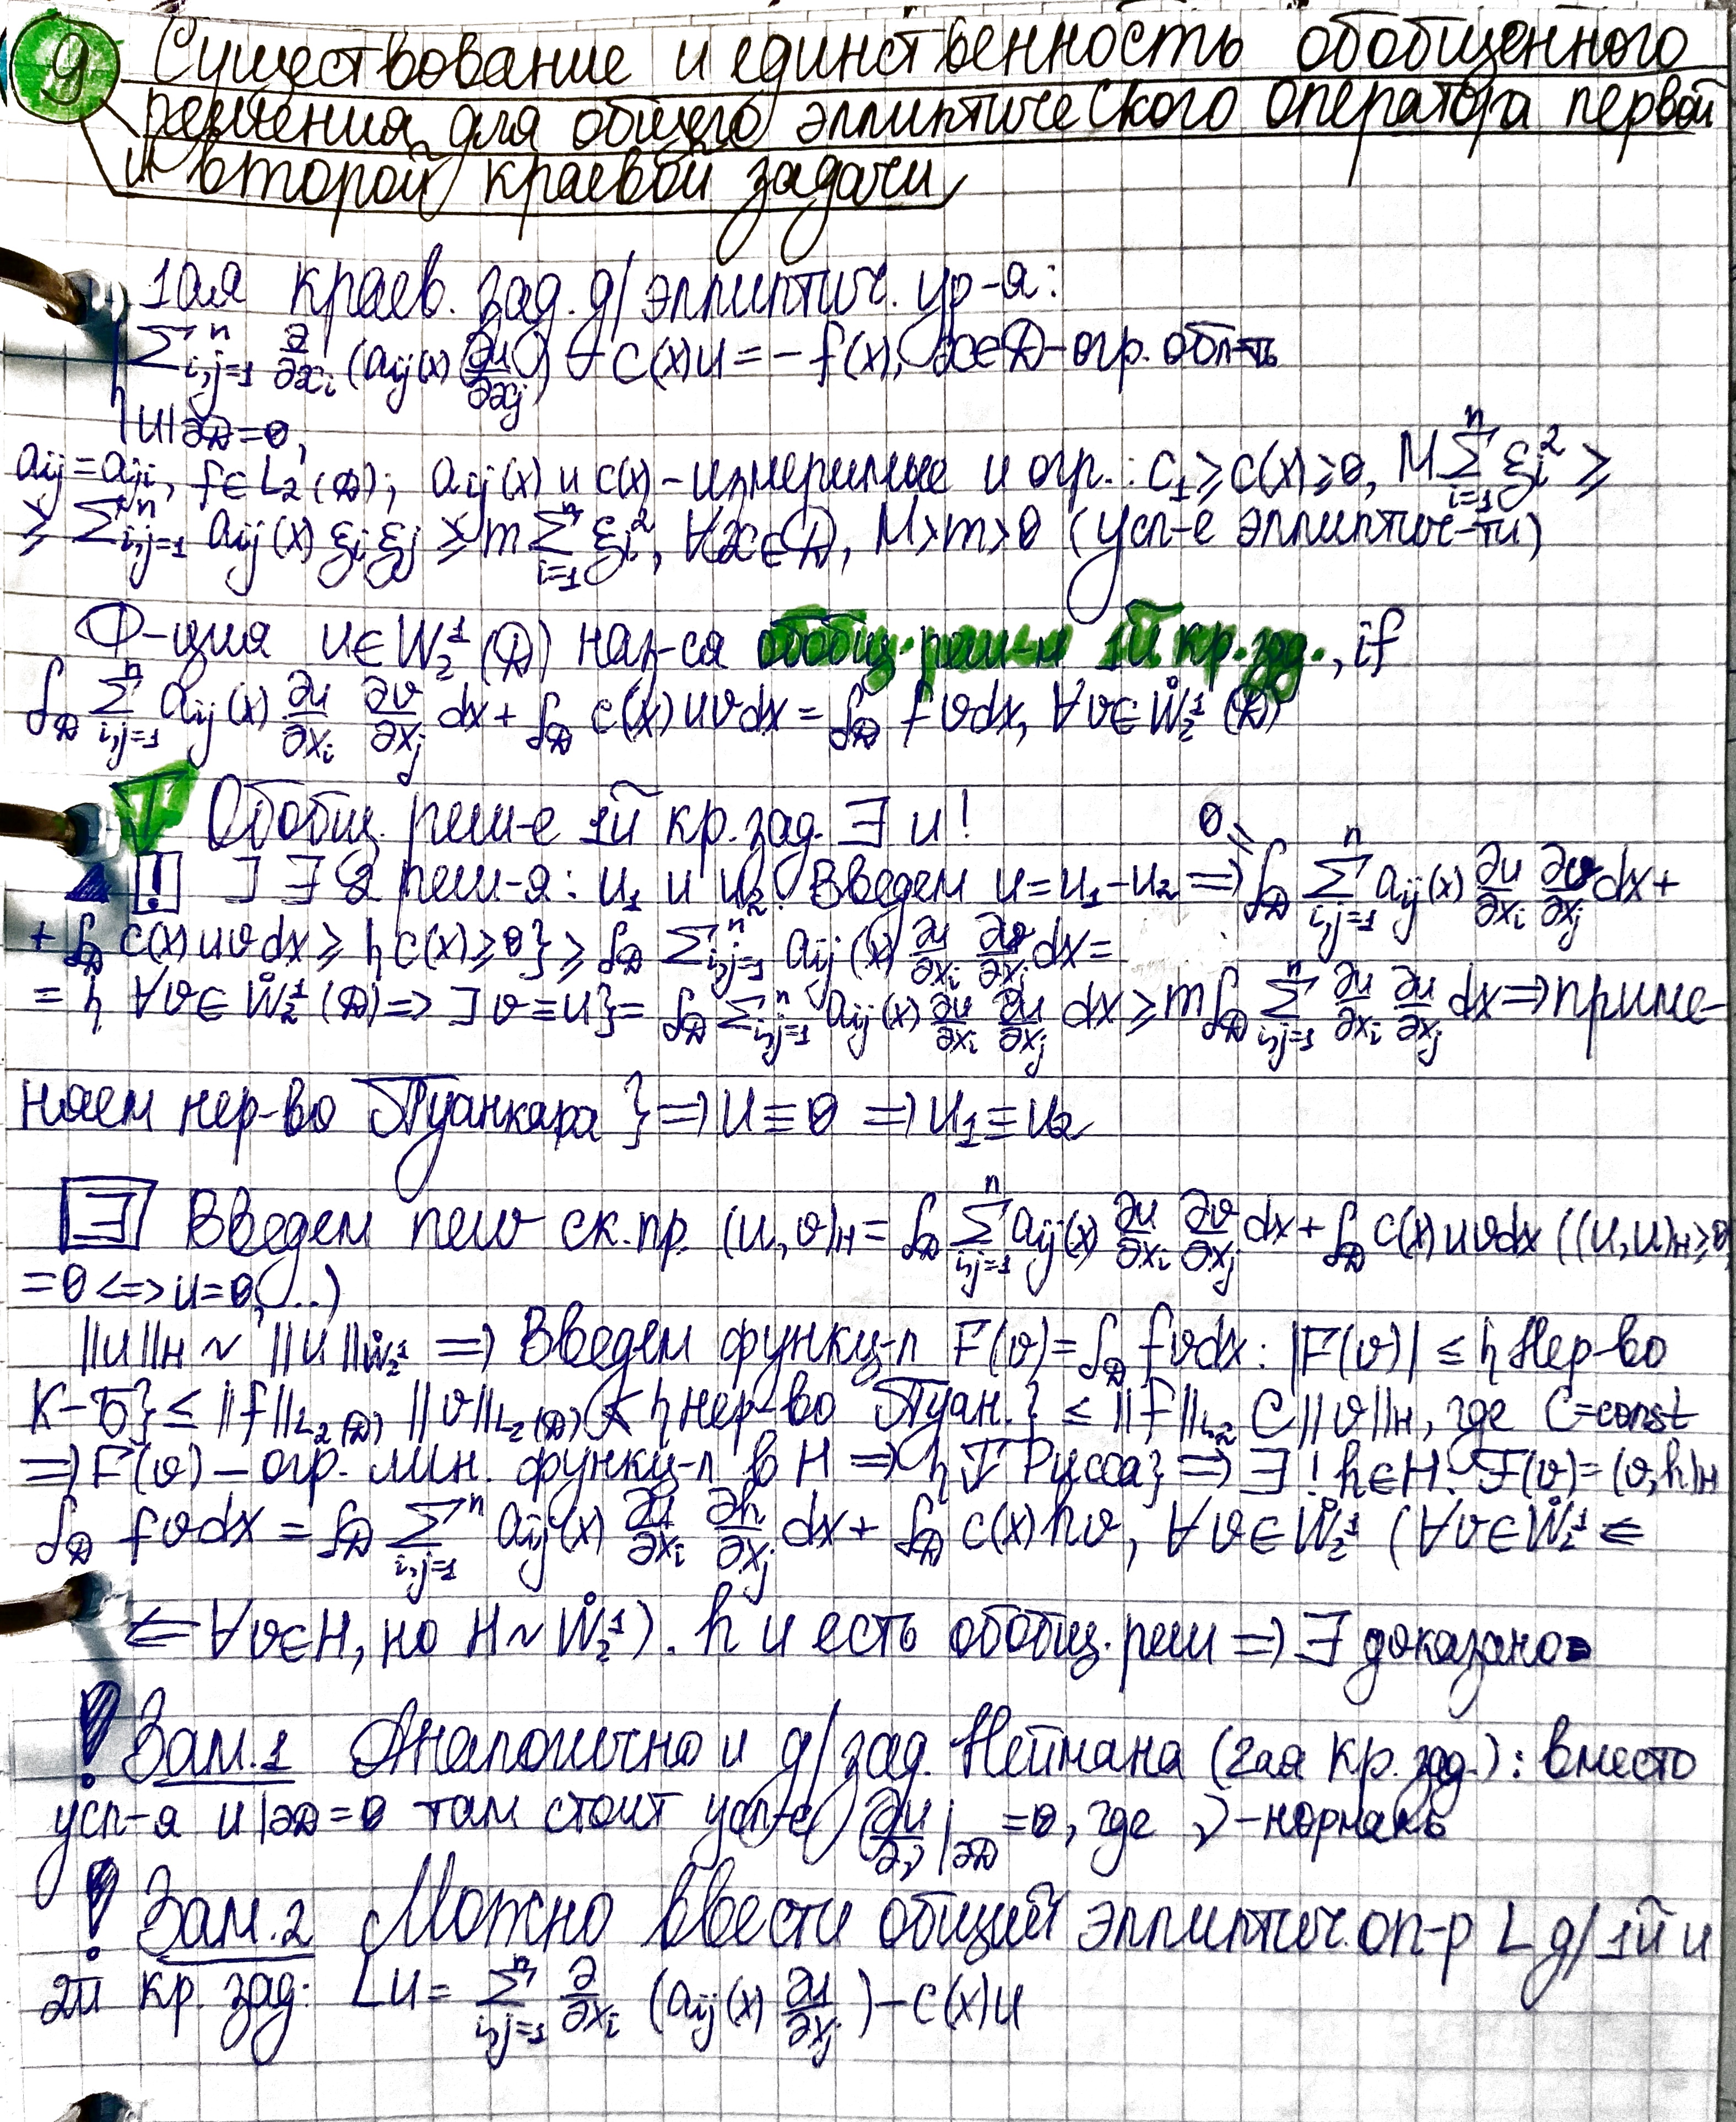 9 Существование и единственность обобщенного
решения для общего эллиптического оператора первой
и второй краевой задачи
1ая краев. зад. д/эллиптич. ур-я:
{ ∑ⁿᵢ,ⱼ₌₁ ∂/∂xᵢ (aᵢⱼ(x) ∂u/∂xⱼ) - c(x)u = -f(x), x∈D - огр. обл-ть
u|∂D = 0,
aᵢⱼ = aⱼᵢ, f∈L₂(D); aᵢⱼ(x) и c(x) - измеримые и огр.: c₁ ≥ c(x) ≥ 0, M∑ⁿᵢ₌₁ ξᵢ² ≥
≥ ∑ⁿᵢ,ⱼ₌₁ aᵢⱼ(x) ξᵢξⱼ ≥ m∑ⁿᵢ₌₁ ξᵢ², ∀x∈D, M>m>0 (усл-е эллиптич-ти)
Ф-ция u∈W₂¹(D) наз-ся обобщ. реш-м 1й кр. зад., if
∫_D ∑ⁿᵢ,ⱼ₌₁ aᵢⱼ(x) ∂u/∂xᵢ ∂v/∂xⱼ dx + ∫_D c(x)uvdx = ∫_D fvdx, ∀v∈W̊₂¹(D)
T Обобщ. реш-е 1й кр. зад. ∃ и !
! ] ∃ 2 реш-я: u₁ и u₂. Введем u = u₁ - u₂ ⇒ 0 = ∫_D ∑ⁿᵢ,ⱼ₌₁ aᵢⱼ(x) ∂u/∂xᵢ ∂v/∂xⱼ dx +
+ ∫_D c(x)uvdx ≥ {c(x) ≥ 0} ≥ ∫_D ∑ⁿᵢ,ⱼ₌₁ aᵢⱼ(x) ∂u/∂xᵢ ∂v/∂xⱼ dx =
= { ∀v∈W̊₂¹(D) ⇒ ] v = u } = ∫_D ∑ⁿᵢ,ⱼ₌₁ aᵢⱼ(x) ∂u/∂xᵢ ∂u/∂xⱼ dx ≥ m∫_D ∑ⁿᵢ,ⱼ₌₁ ∂u/∂xᵢ ∂u/∂xⱼ dx ⇒ приме-
няем нер-во Пуанкаре } ⇒ u ≡ 0 ⇒ u₁ ≡ u₂
∃ Введем new ск. пр. (u,v)_H = ∫_D ∑ⁿᵢ,ⱼ₌₁ aᵢⱼ(x) ∂u/∂xᵢ ∂v/∂xⱼ dx + ∫_D c(x)uvdx ((u,u)_H ≥ 0,
= 0 ⇔ u = 0, ...)
||u||_H ~ ||u||_W̊₂¹ ⇒ Введем функц-л F(v) = ∫_D fvdx: |F(v)| ≤ { Нер-во
К-Б } ≤ ||f||_L₂(D) ||v||_L₂(D) ≤ { нер-во Пуан. } ≤ ||f||_L₂ C||v||_H, где C=const
⇒ F(v) - огр. лин. функц-л в H ⇒ { Т Рисса } ⇒ ∃! h∈H: F(v) = (v,h)_H
∫_D fvdx = ∫_D ∑ⁿᵢ,ⱼ₌₁ aᵢⱼ(x) ∂u/∂xᵢ ∂h/∂xⱼ dx + ∫_D c(x)hv, ∀v∈W̊₂¹ (∀v∈W̊₂¹ ⇐
⇐ ∀v∈H, но H ~ W̊₂¹). h и есть обобщ. реш ⇒ ∃ доказано
! Зам. 1 Аналогично и д/зад. Неймана (2ая кр. зад.): вместо
усл-я u|∂D = 0 там стоит усл-е ∂u/∂ν|∂D = 0, где ν - нормаль
! Зам. 2 Можно ввести общий эллиптич. оп-р L д/1й и
2й кр. зад: Lu = ∑ⁿᵢ,ⱼ₌₁ ∂/∂xᵢ (aᵢⱼ(x) ∂u/∂xⱼ) - c(x)u